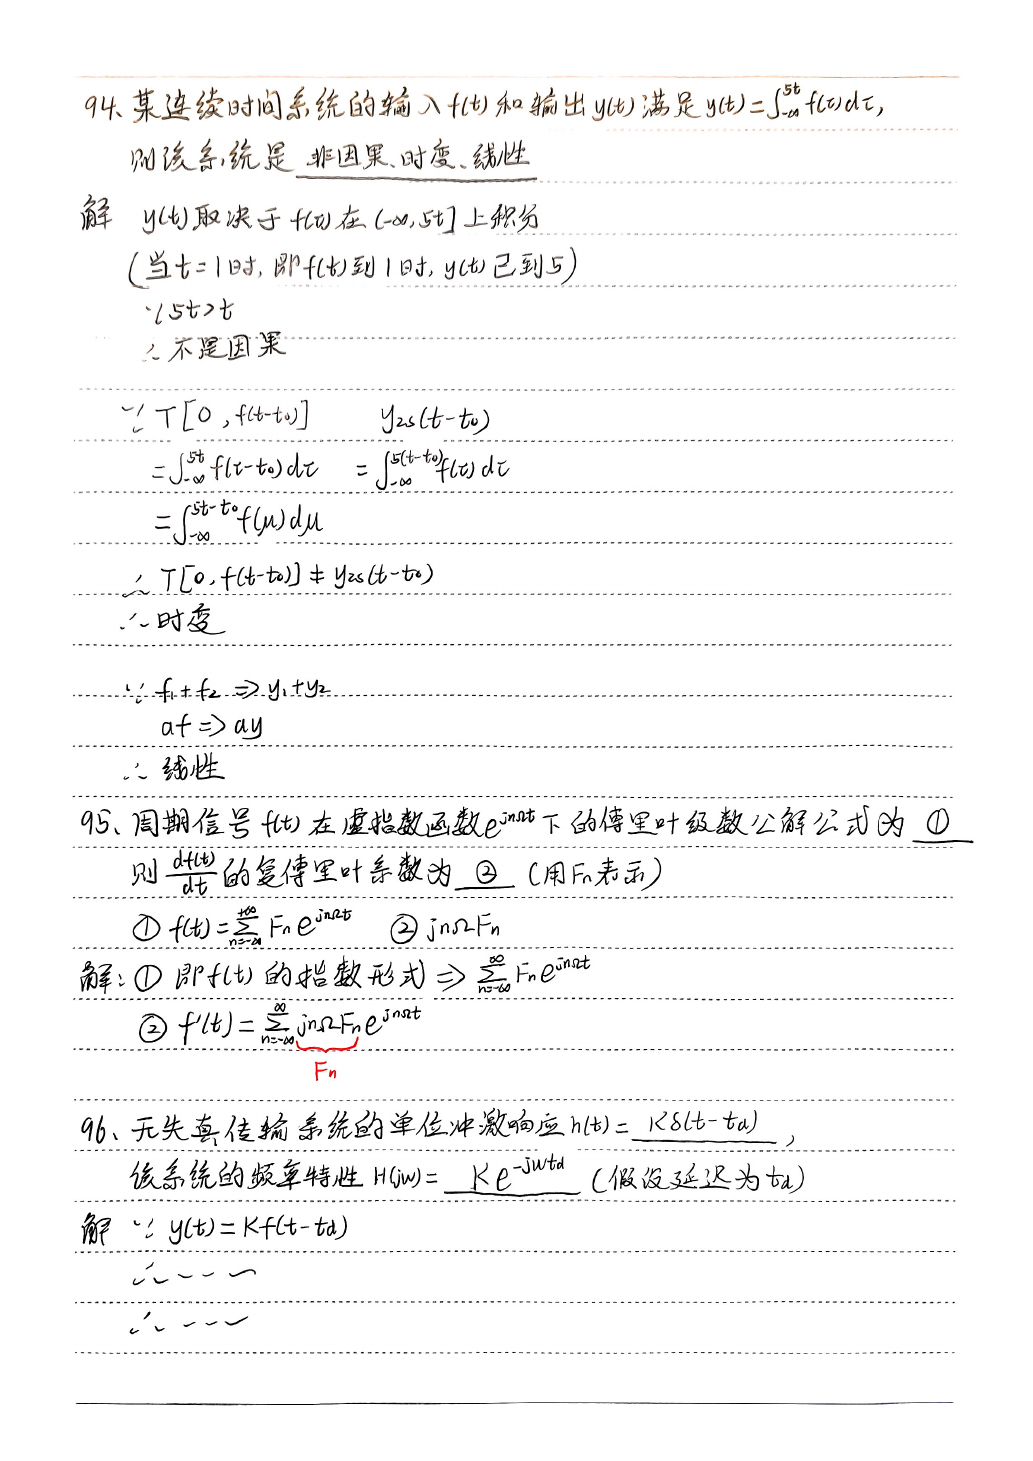 94、某连续时间系统的输入f(t)和输出y(t)满足y(t)=∫_{-∞}^{5t} f(τ)dτ,
则该系统是 非因果、时变、线性
解 y(t)取决于f(τ)在(-∞,5t]上积分
(当t=1时,即f(t)到1时,y(t)已到5)
∵5t>t
∴不是因果
∵T[0,f(t-t₀)] y₂ₛ(t-t₀)
=∫_{-∞}^{5t} f(τ-t₀)dτ =∫_{-∞}^{5(t-t₀)} f(τ)dτ
=∫_{-∞}^{5t-t₀} f(μ)dμ
∴T[0,f(t-t₀)]≠y₂ₛ(t-t₀)
∴时变
∵f₁+f₂⇒y₁+y₂
af⇒ay
∴线性
95、周期信号f(t)在虚指数函数e^{jnΩt}下的傅里叶级数公解公式为 ①
则 df(t)/dt 的复傅里叶系数为 ② (用Fn表示)
① f(t)=∑_{n=-∞}^{+∞} Fn e^{jnΩt} ② jnΩFn
解:① 即f(t)的指数形式⇒∑_{n=-∞}^{∞} Fn e^{jnΩt}
② f'(t)=∑_{n=-∞}^{∞} jnΩFn e^{jnΩt}
Fn
96、无失真传输系统的单位冲激响应h(t)= Kδ(t-td) ,
该系统的频率特性H(jw)= Ke^{-jwtd} (假设延迟为td)
解 ∵y(t)=Kf(t-td)
∴---~
∴---~